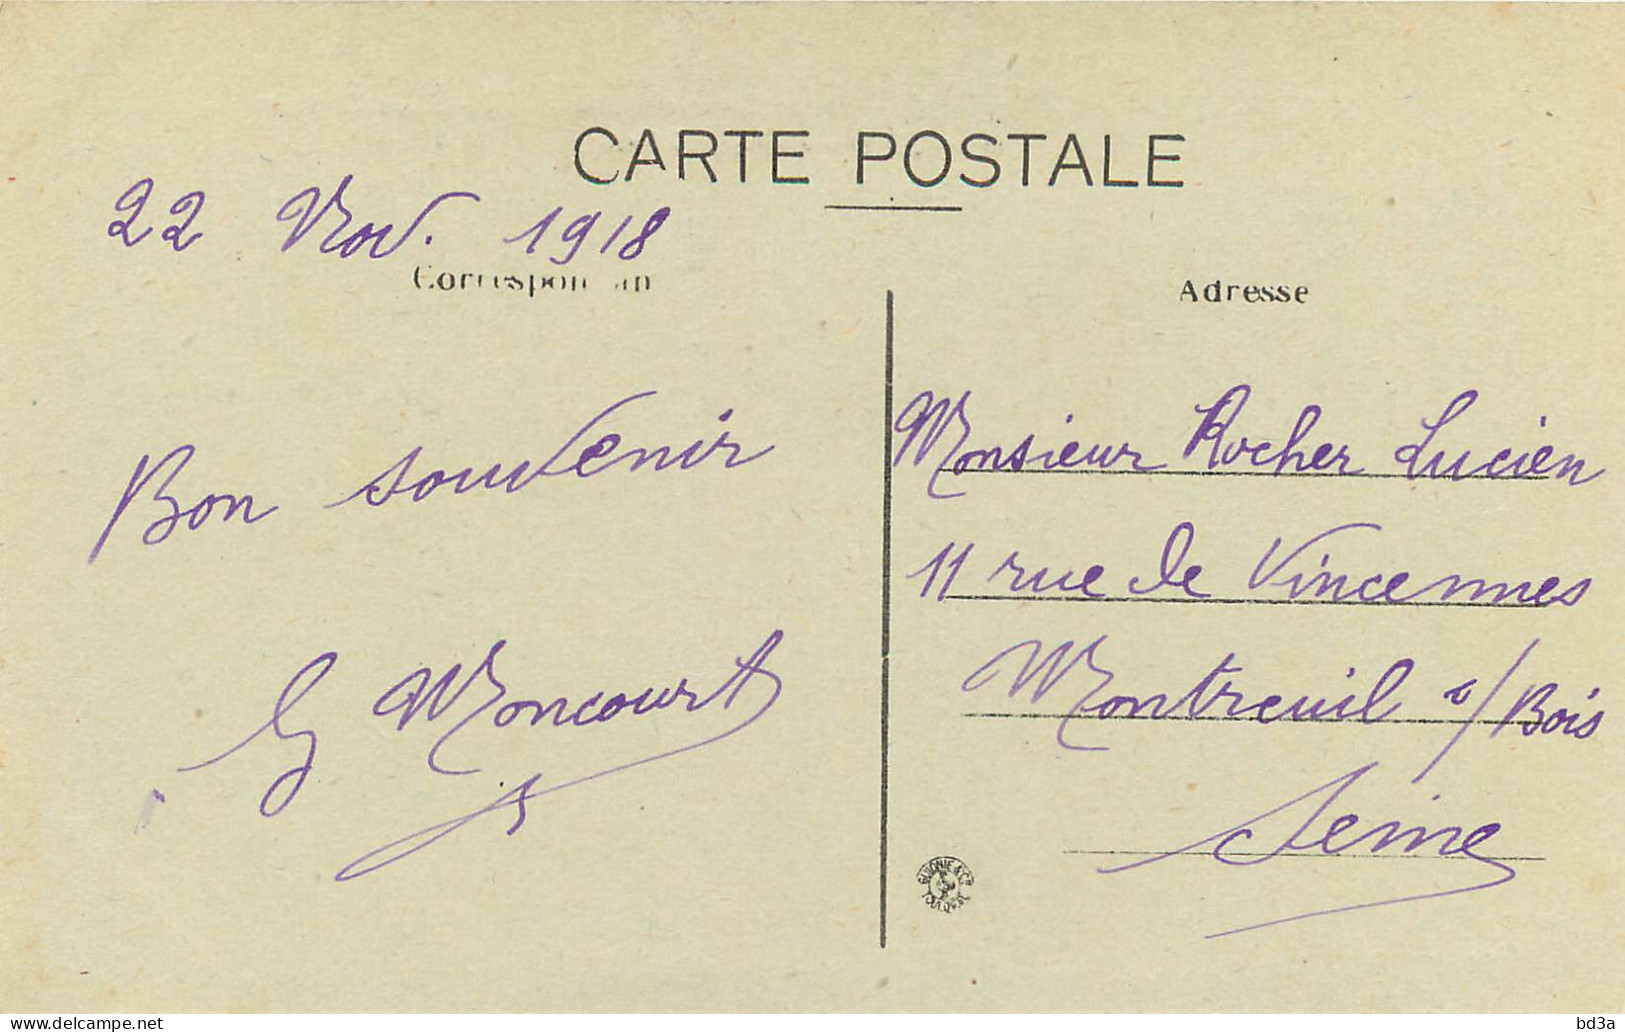 CARTE POSTALE
22 Nov. 1918
Adresse
Bon souvenir
G Moncourt
Monsieur Rocher Lucien
11 rue de Vincennes
Montreuil s/Bois
Seine
& Cie
www.delcampe.net
bd3a